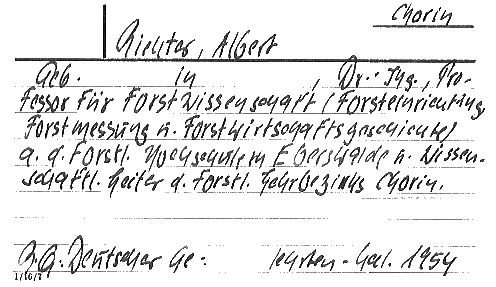 Chorin
Richter, Albert
Geb. in , Dr.-Ing., Pro-
fessor für Forstwissenschaft (Forsteinrichtung,
Forstmessung u. Forstwirtschaftsgeschichte)
a. d. Forstl. Hochschule in Eberswalde u. Wissen-
schaftl. Leiter d. Forstl. Lehrbezirks Chorin.
Deutscher Ge- lehrten-Kal. 1954